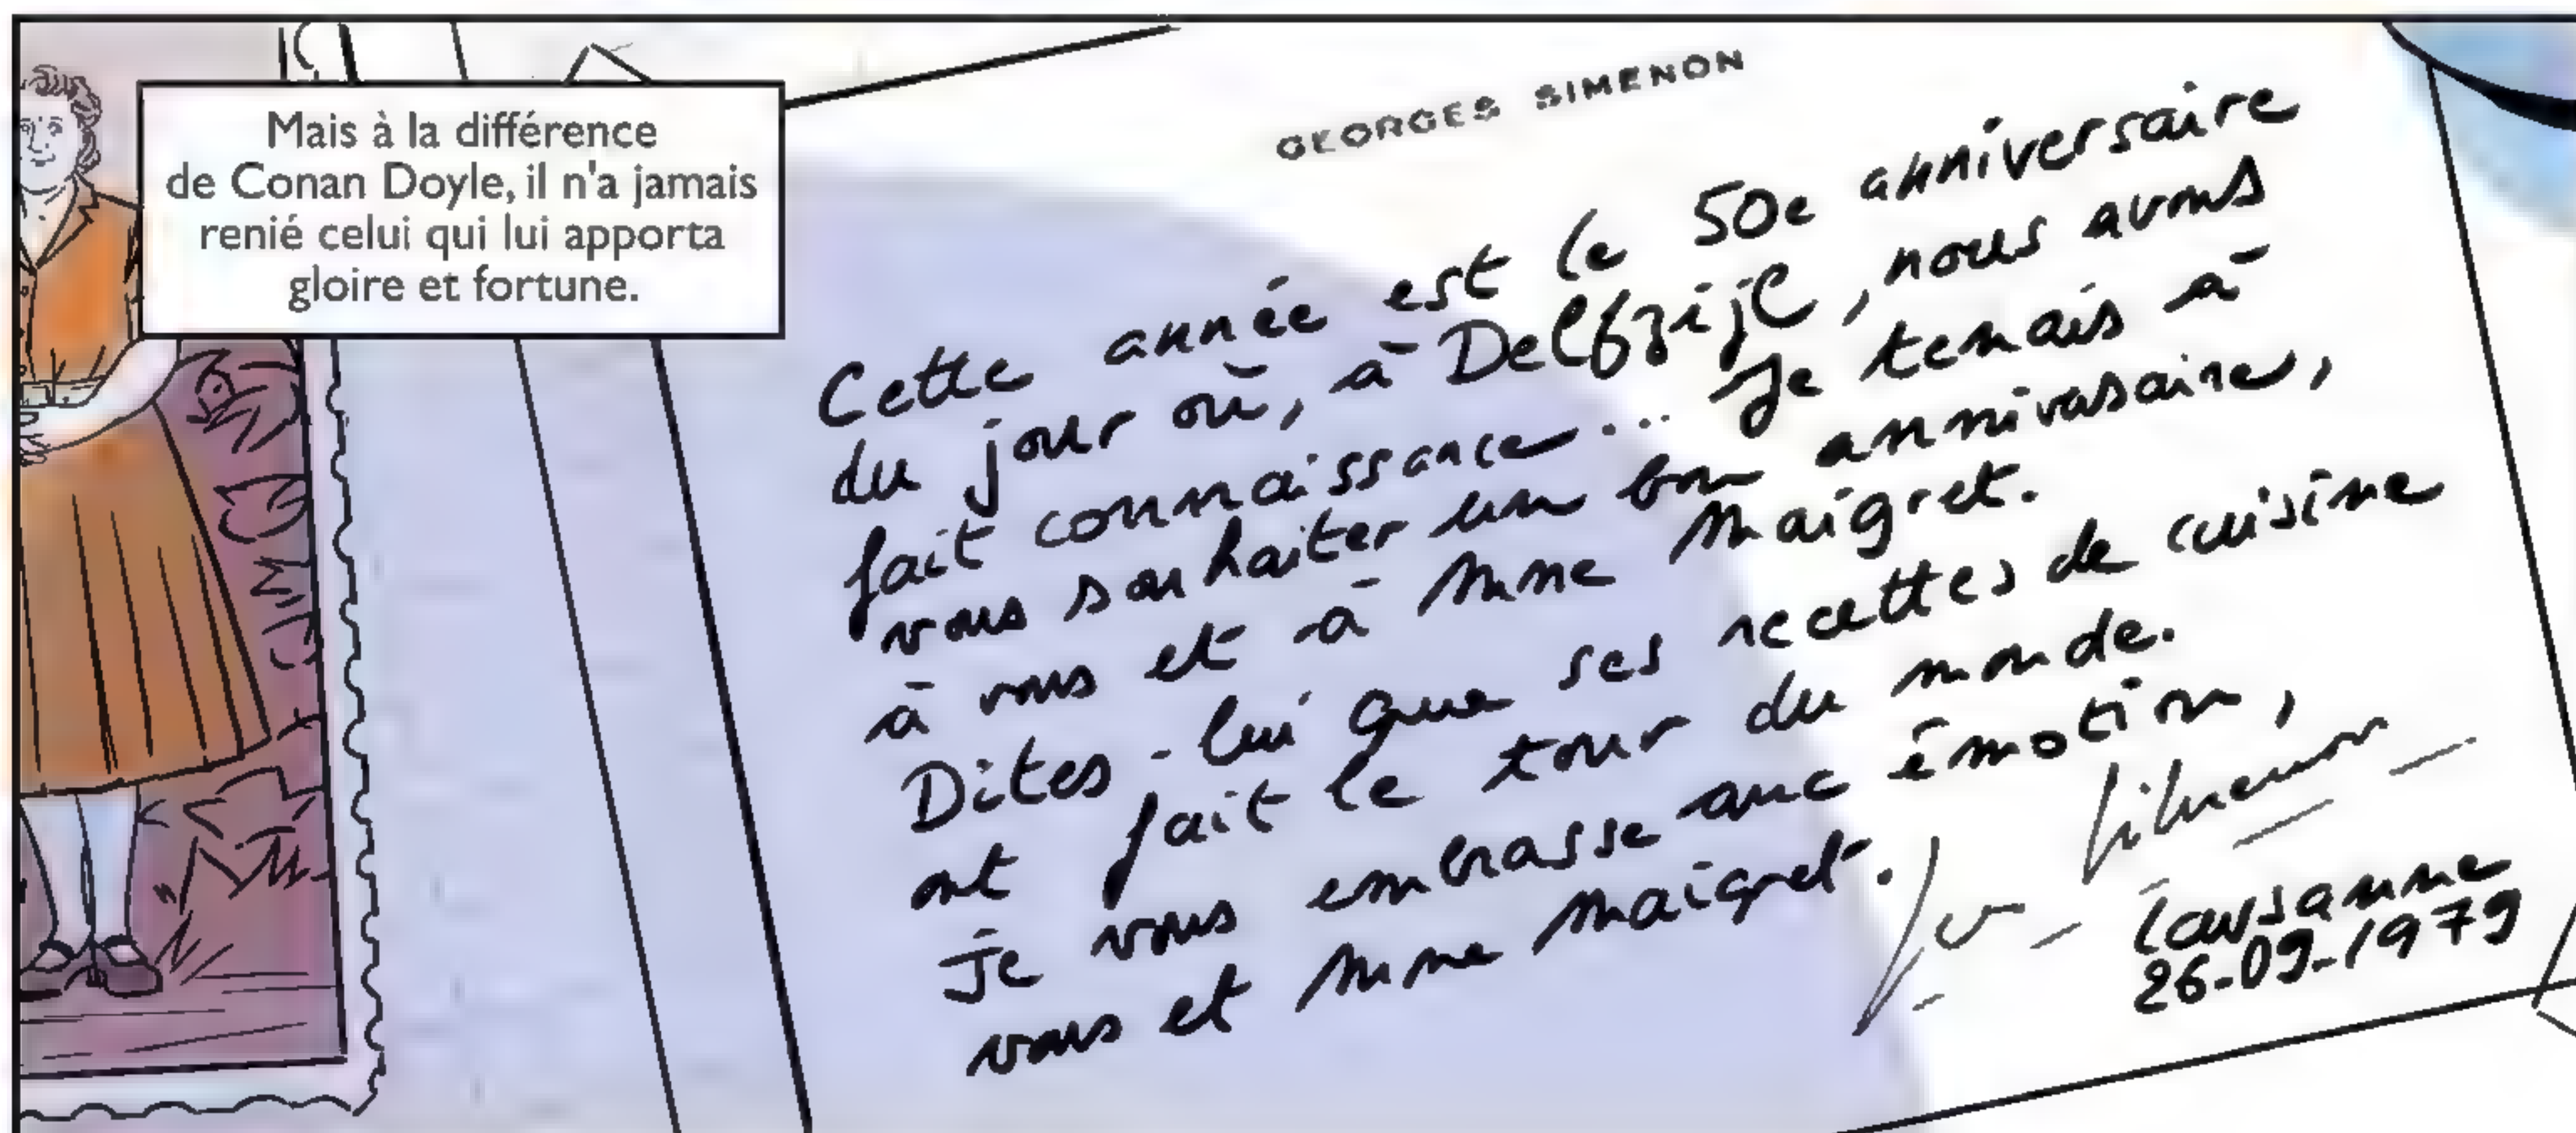 Mais à la différence
de Conan Doyle, il n'a jamais
renié celui qui lui apporta
gloire et fortune.
GEORGES SIMENON
Cette année est le 50e anniversaire
du jour où, à Delfzijl, nous avons
fait connaissance... Je tenais à
vous souhaiter un bon anniversaire,
à vous et à Mme Maigret.
Dites-lui que ses recettes de cuisine
ont fait le tour du monde.
Je vous embrasse avec émotion,
vous et Mme Maigret.
Simenon
Lausanne
26-09-1979